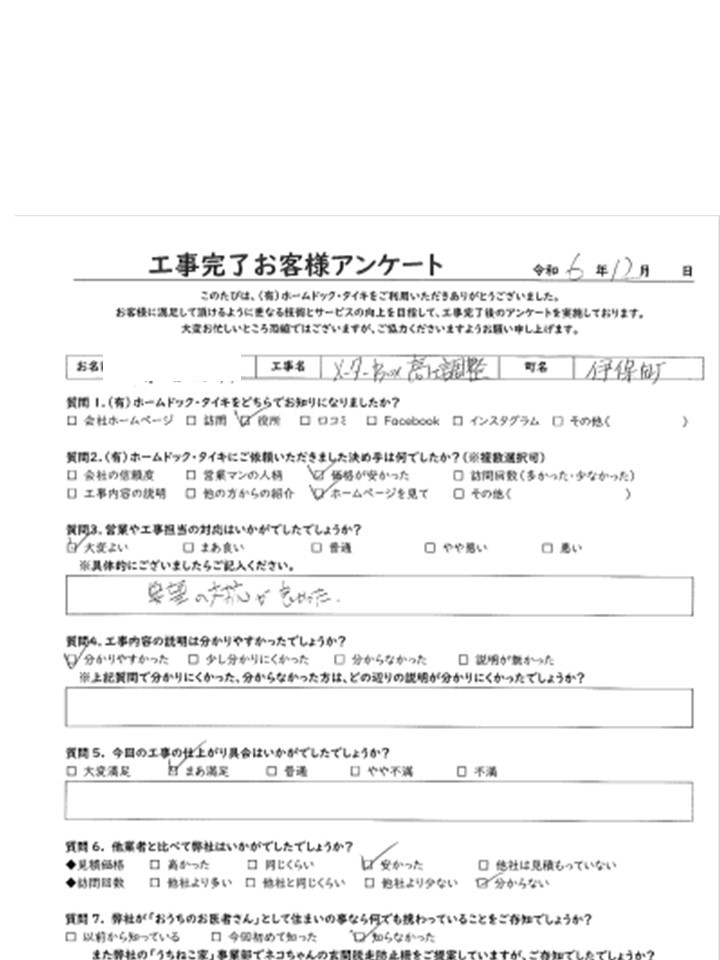 工事完了お客様アンケート 令和 6 年 12 月 日
このたびは、(有)ホームドック・タイキをご利用いただきありがとうございました。
お客様に満足して頂けるように更なる技術とサービスの向上を目指して、工事完了後のアンケートを実施しております。
大変お忙しいところ恐縮ではございますが、ご協力くださいますようお願い申し上げます。
お名 工事名 メーターBox高さ調整 町名 伊保町
質問 1.(有)ホームドック・タイキをどちらでお知りになりましたか?
□ 会社ホームページ □ 訪問 ☑ 役所 □ 口コミ □ Facebook □ インスタグラム □ その他( )
質問2.(有)ホームドック・タイキにご依頼いただきました決め手は何でしたか?(※複数選択可)
□ 会社の信頼度 □ 営業マンの人柄 ☑ 価格が安かった □ 訪問回数(多かった・少なかった)
□ 工事内容の説明 □ 他の方からの紹介 ☑ ホームページを見て □ その他( )
質問3.営業や工事担当の対応はいかがでしたでしょうか?
☑ 大変よい □ まあ良い □ 普通 □ やや悪い □ 悪い
※具体的にございましたらご記入ください。
要望の対応が良かった.
質問4.工事内容の説明は分かりやすかったでしょうか?
☑ 分かりやすかった □ 少し分かりにくかった □ 分からなかった □ 説明が無かった
※上記質問で分かりにくかった、分からなかった方は、どの辺りの説明が分かりにくかったでしょうか?
質問 5. 今回の工事の仕上がり具合はいかがでしたでしょうか?
□ 大変満足 ☑ まあ満足 □ 普通 □ やや不満 □ 不満
質問 6. 他業者と比べて弊社はいかがでしたでしょうか?
◆見積価格 □ 高かった □ 同じくらい ☑ 安かった □ 他社は見積もっていない
◆訪問回数 □ 他社より多い □ 他社と同じくらい □ 他社より少ない ☑ 分からない
質問 7. 弊社が「おうちのお医者さん」として住まいの事なら何でも携わっていることをご存知でしょうか?
□ 以前から知っている □ 今回初めて知った ☑ 知らなかった
また弊社の「うちねこ家」事業部でネコちゃんの玄関脱走防止柵をご提案していますが、ご存知でしたでしょうか?